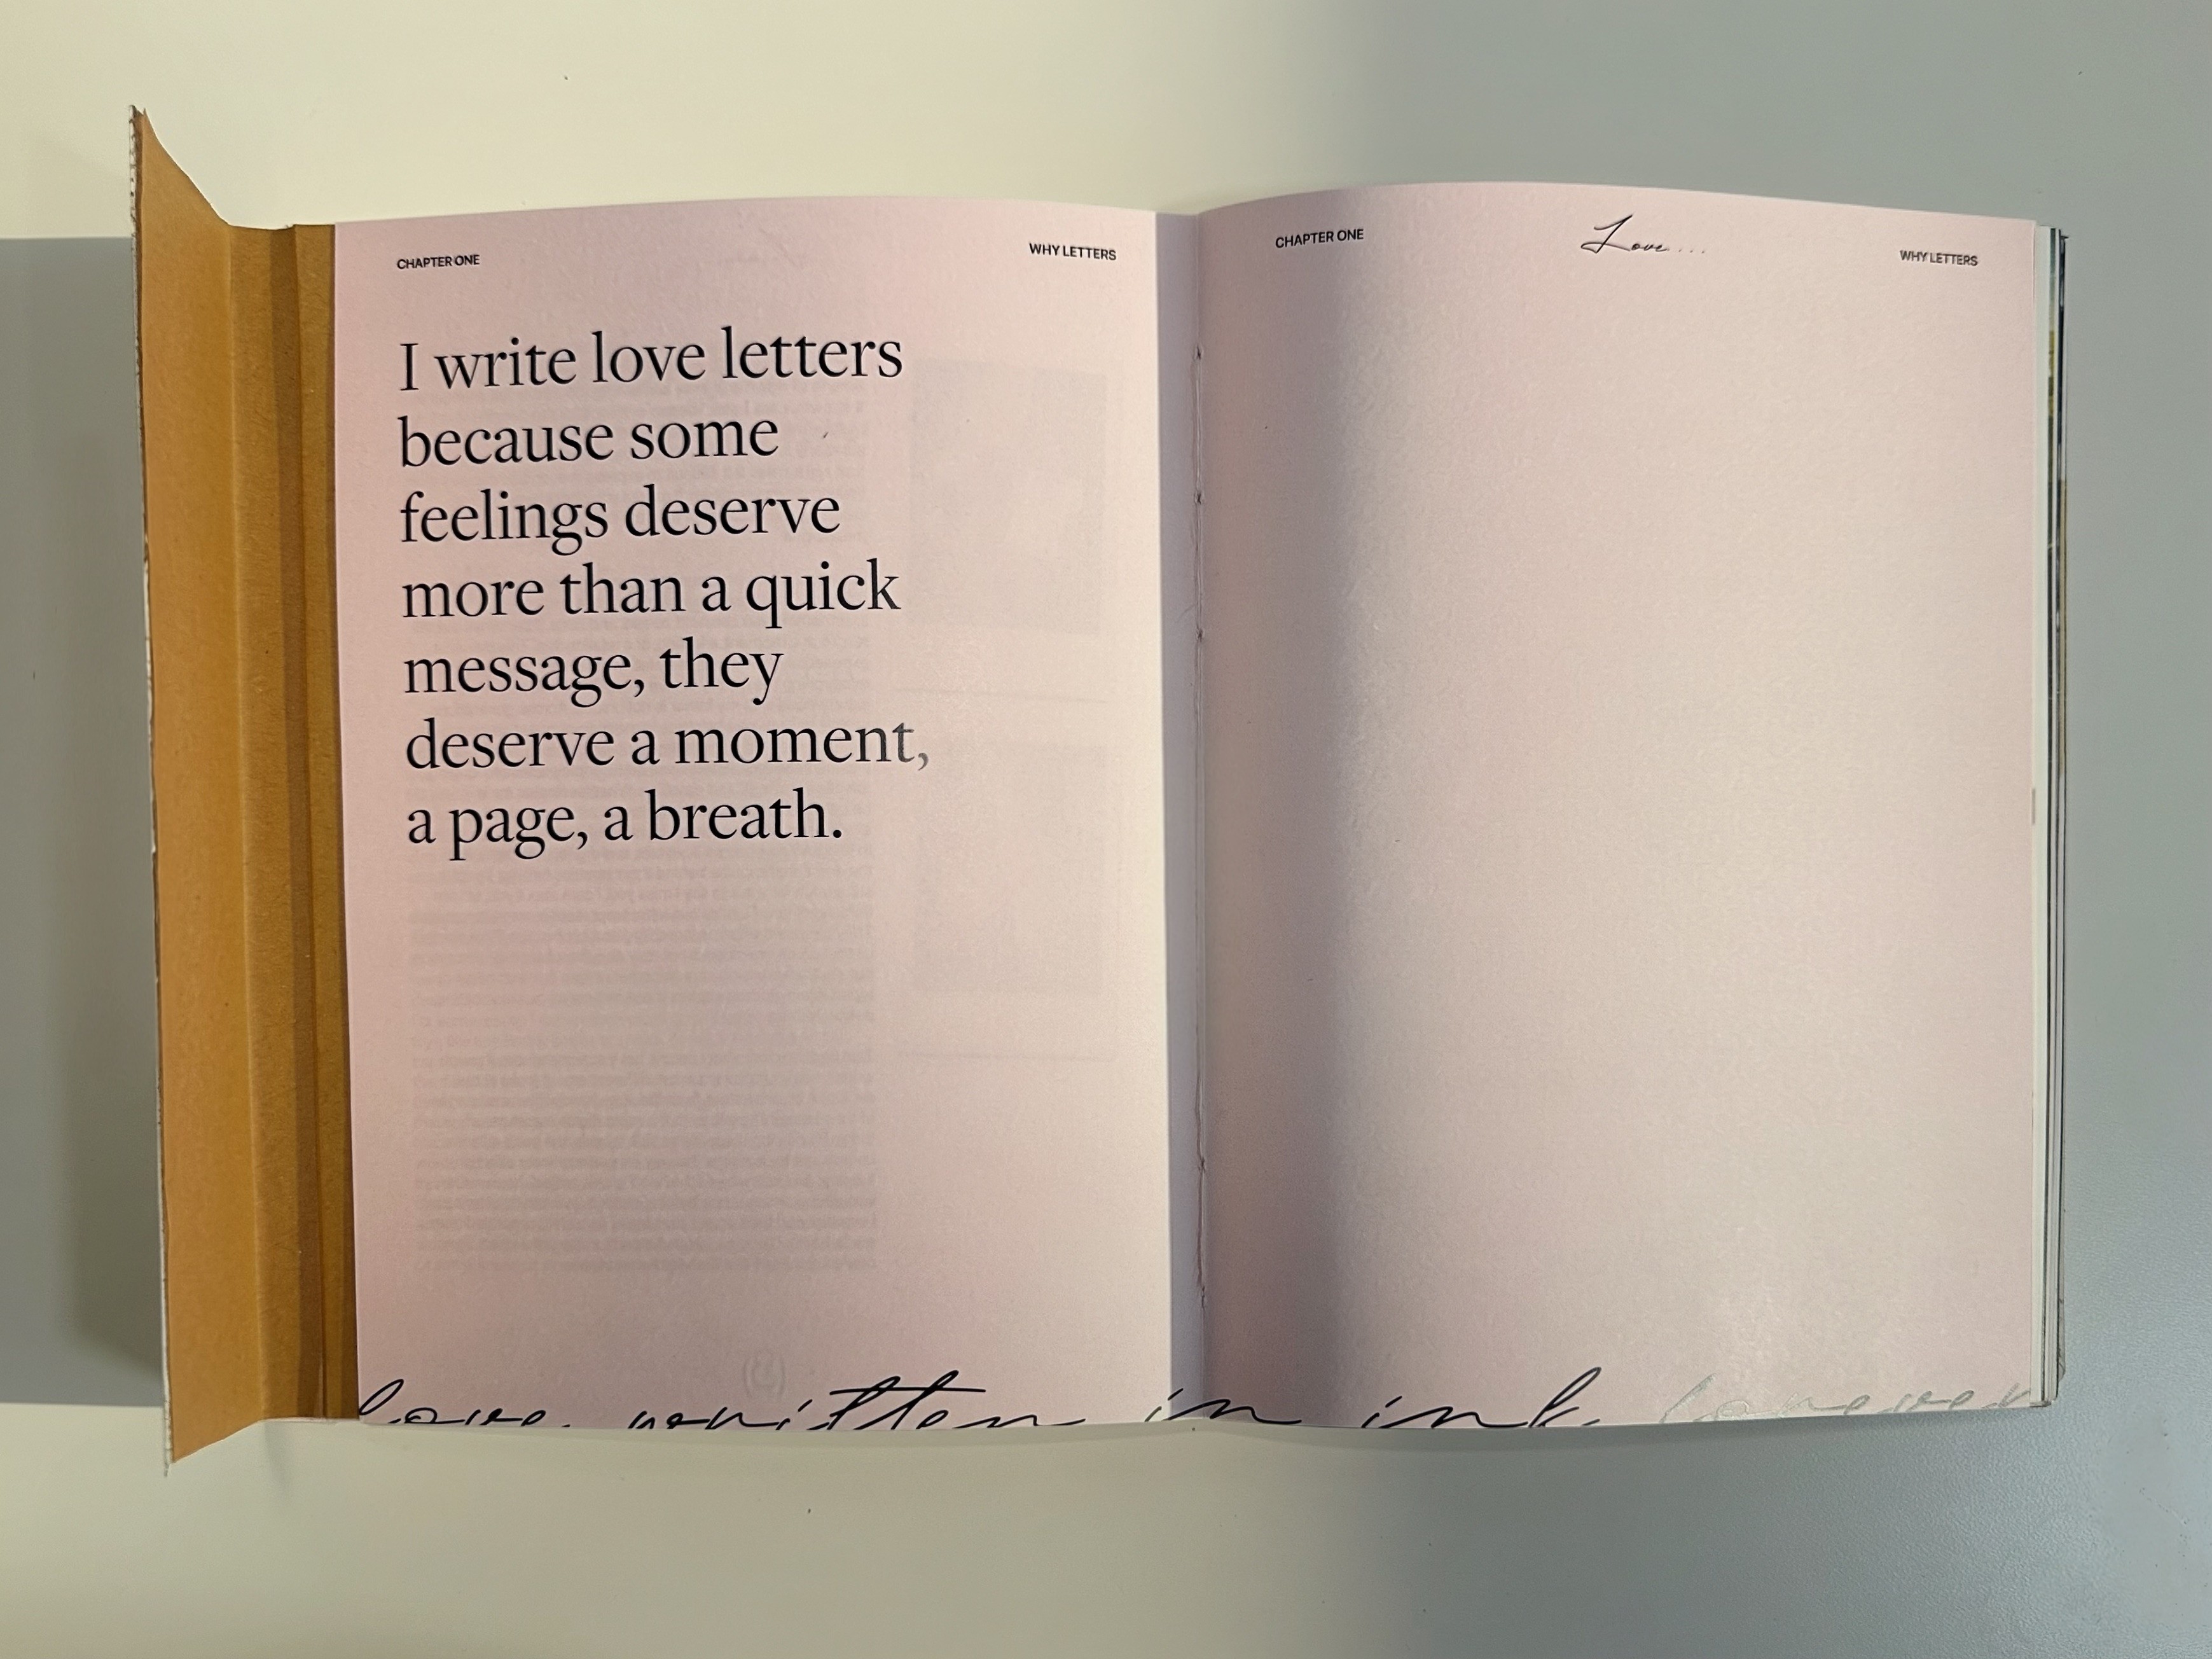 CHAPTER ONE
WHY LETTERS
I write love letters
because some
feelings deserve
more than a quick
message, they
deserve a moment,
a page, a breath.
CHAPTER ONE
Love...
WHY LETTERS
love, written in ink, forever